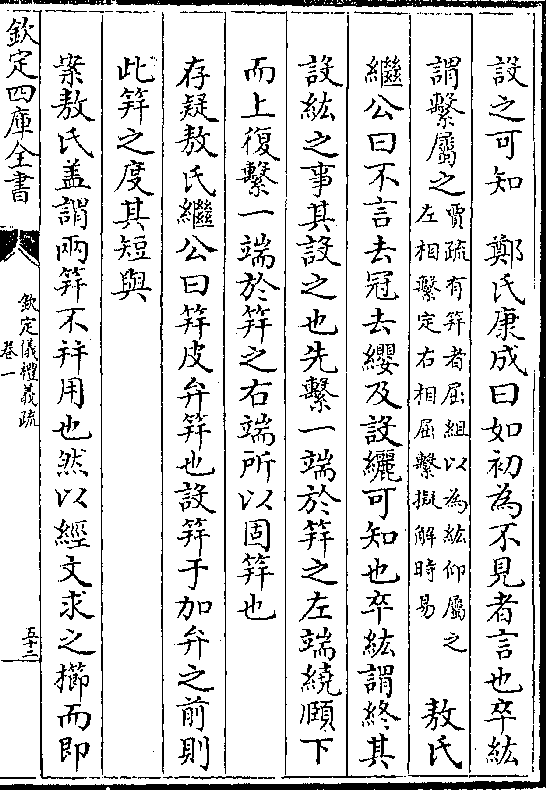 設之可知　鄭氏康成曰如初為不見者言也卒紘
謂繫屬之賈疏有笄者屈組以為紘仰屬之
左相繫定右相屈繫擬解時易　敖氏
繼公曰不言去冠去纓及設纚可知也卒紘謂終其
設紘之事其設之也先繫一端於笄之左端繞頤下
而上復繫一端於笄之右端所以固笄也
存疑敖氏繼公曰笄皮弁笄也設笄于加弁之前則
此笄之度其短與
案敖氏蓋謂兩笄不并用也然以經文求之櫛而即
欽定四庫全書
欽定儀禮義疏
卷一
五十三